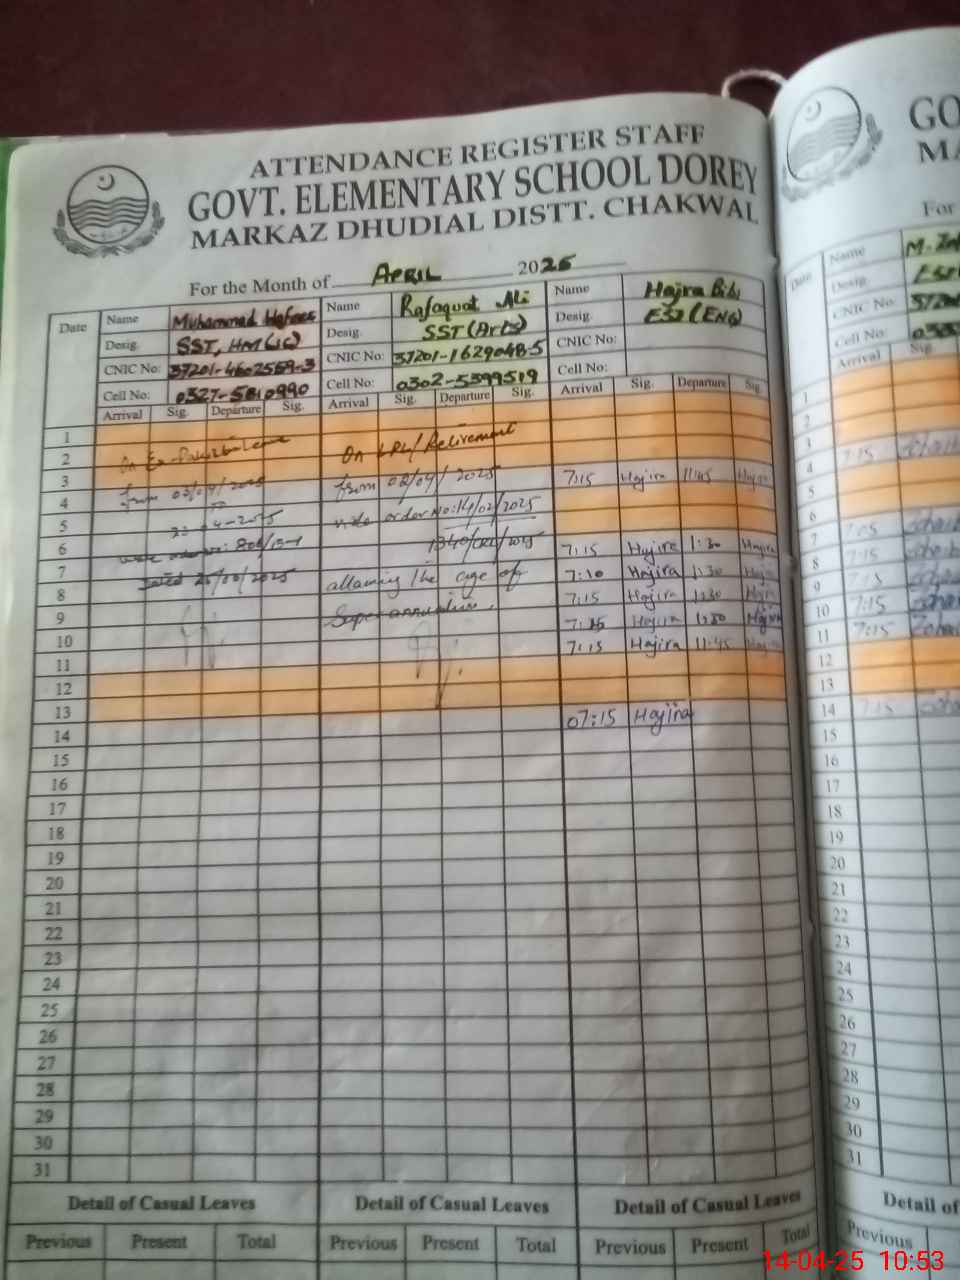 ATTENDANCE REGISTER STAFF
GOVT. ELEMENTARY SCHOOL DOREY
MARKAZ DHUDIAL DISTT. CHAKWAL
For the Month of APRIL 2025
Date
Name Muhammad Hafeez
Desig. SST, HM(IC)
CNIC No: 37201-4602569-3
Cell No: 0327-5810990
Arrival Sig. Departure Sig.
Name Rafaquat Ali
Desig. SST(Arts)
CNIC No: 37201-1629048-5
Cell No: 0302-5399519
Arrival Sig. Departure Sig.
Name Hajira Bibi
Desig. ESE(ENG)
CNIC No:
Cell No:
Arrival Sig. Departure Sig.
1
2 On Leave On LPR/Retirement
3 from from 02/04/2025 7:15 Hajira 11:45 Hajira
4 order No: 14/02/2025
5
6 7:15 Hajira 1:30 Hajira
7 dated attaining the age of 7:10 Hajira 1:30 Hajira
8 Superannuation. 7:15 Hajira 1:30 Hajira
9 7:15 Hajira 1:30 Hajira
10 7:15 Hajira 11:45 Hajira
11
12
13 07:15 Hajira
14
15
16
17
18
19
20
21
22
23
24
25
26
27
28
29
30
31
Detail of Casual Leaves Detail of Casual Leaves Detail of Casual Leaves
Previous Present Total Previous Present Total Previous Present Total
GO
MA
For
Date
Name
Desig.
CNIC No:
Cell No:
Arrival Sig.
1
2
3
4 7:15
5
6
7
8 7:15
9 7:15
10 7:15
11 7:15
12
13
14 7:15
15
16
17
18
19
20
21
22
23
24
25
26
27
28
29
30
31
Detail of
Previous
14-04-25 10:53